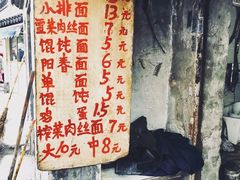 小排面 13元
雪菜肉丝面 7元
馄饨面
阳春面
单面 5元
馄饨 5元
鸡蛋 1.5元
榨菜肉丝面 7元
大10元 中8元